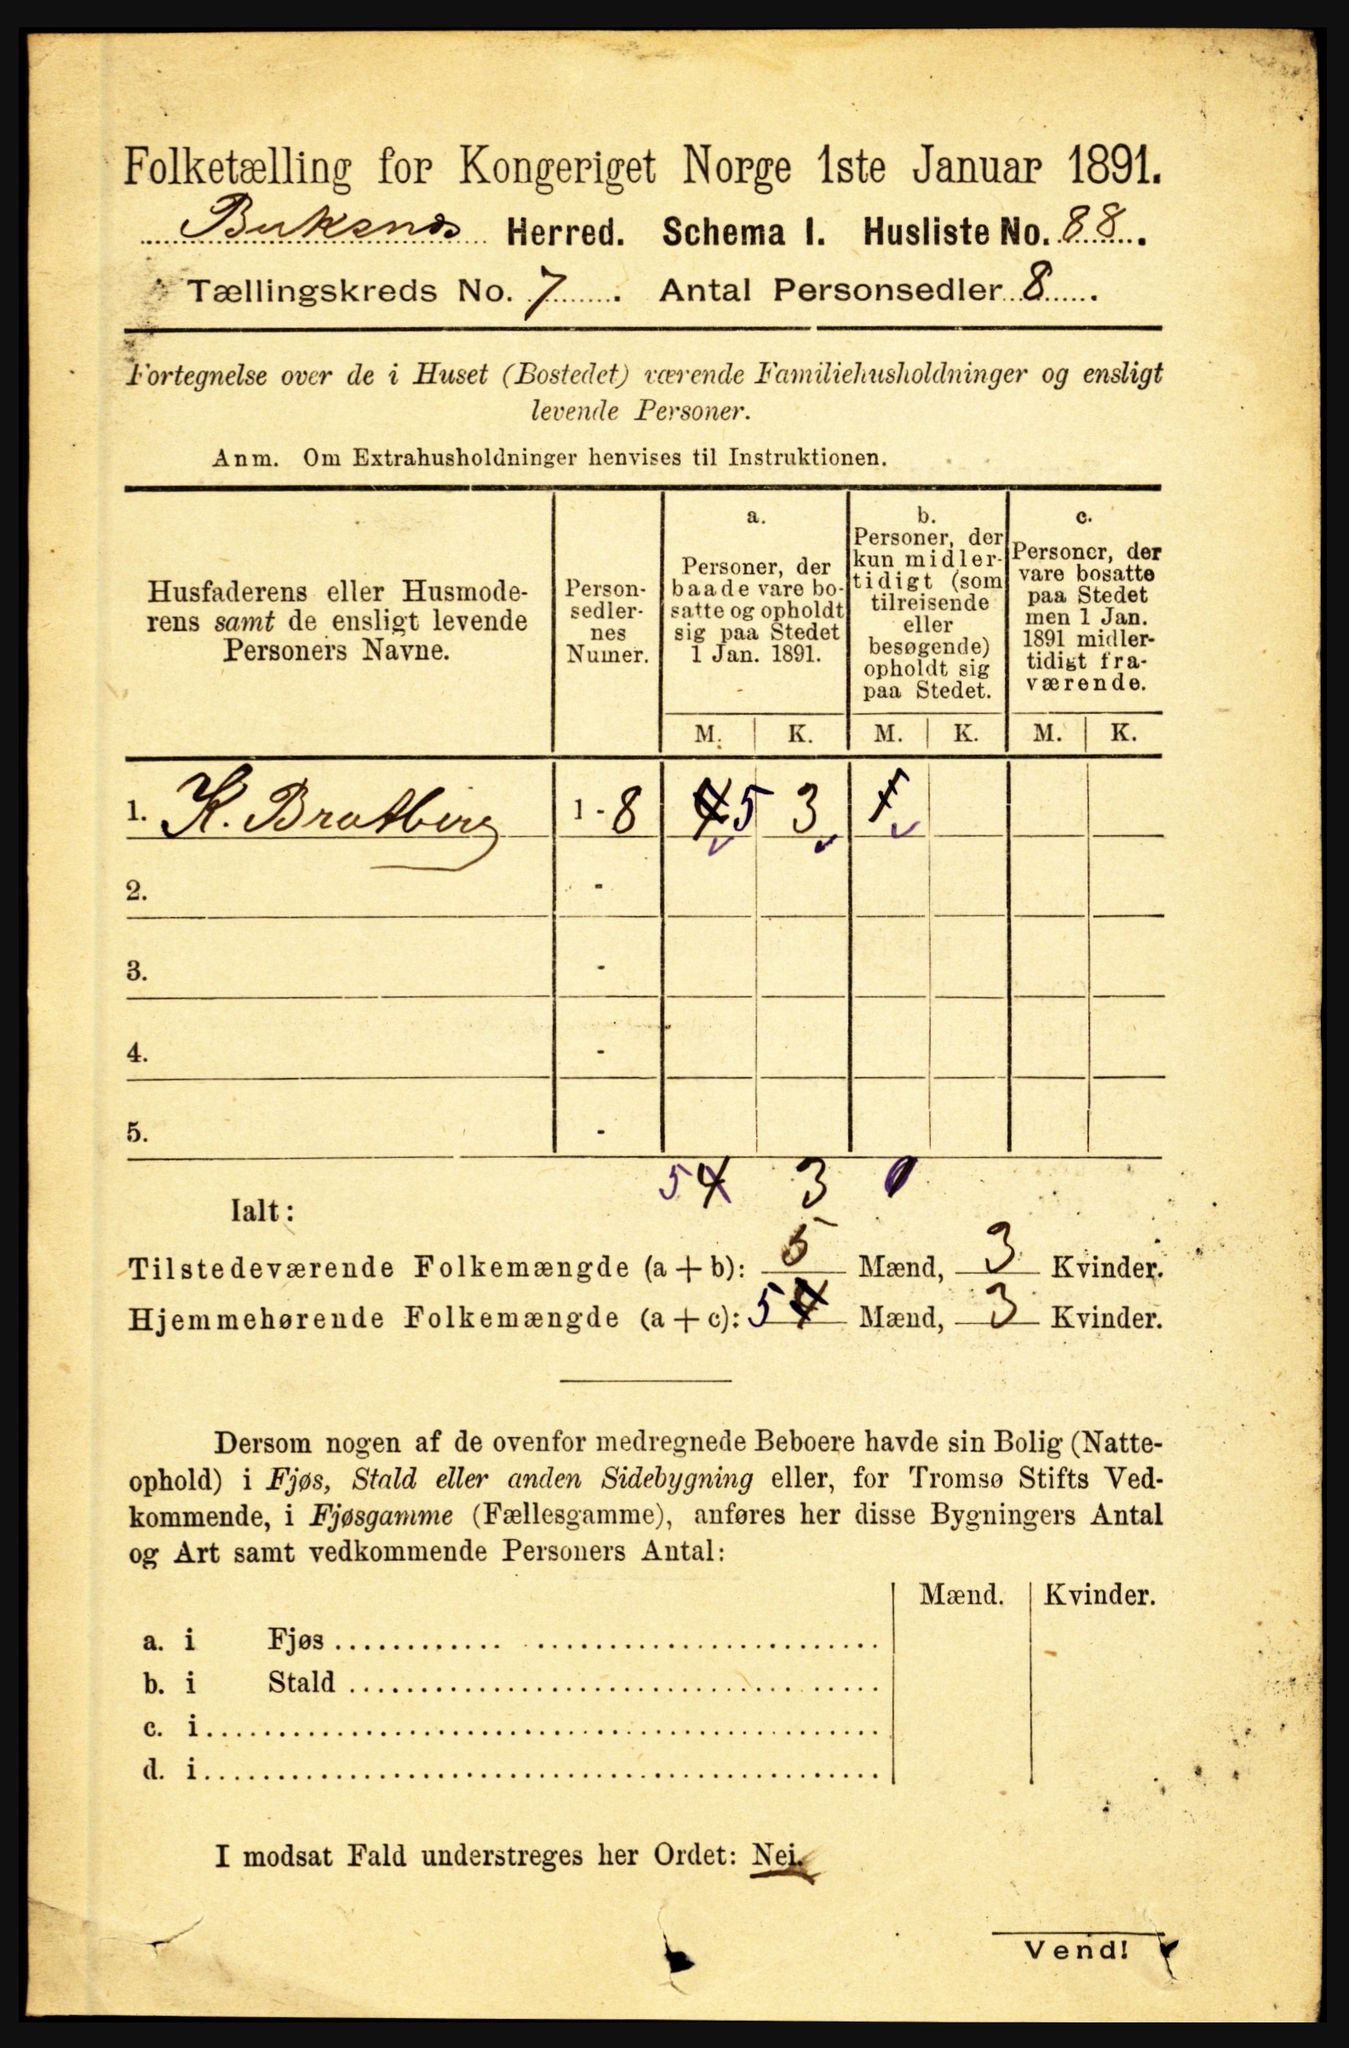 Folketælling for Kongeriget Norge 1ste Januar 1891.
Buksnes Herred. Schema I. Husliste No. 88.
Tællingskreds No. 7. Antal Personsedler 8.
Fortegnelse over de i Huset (Bostedet) værende Familiehusholdninger og ensligt
levende Personer.
Anm. Om Extrahusholdninger henvises til Instruktionen.
Husfaderens eller Husmode-
rens samt de ensligt levende
Personers Navne.
Person-
sedler-
nes
Numer.
a.
Personer, der
baade vare bo-
satte og opholdt
sig paa Stedet
1 Jan. 1891.
b.
Personer, der
kun midler-
tidigt (som
tilreisende
eller
besøgende)
opholdt sig
paa Stedet.
c.
Personer, der
vare bosatte
paa Stedet
men 1 Jan.
1891 midler-
tidigt fra-
værende.
M. K. M. K. M. K.
1. K. Bratberg 1 - 8 4 5 3 1
2. -
3. -
4. -
5. -
5 4 3 0
Ialt:
Tilstedeværende Folkemængde (a + b): 5 Mænd, 3 Kvinder.
Hjemmehørende Folkemængde (a + c): 5 4 Mænd, 3 Kvinder.
Dersom nogen af de ovenfor medregnede Beboere havde sin Bolig (Natte-
ophold) i Fjøs, Stald eller anden Sidebygning eller, for Tromsø Stifts Ved-
kommende, i Fjøsgamme (Fællesgamme), anføres her disse Bygningers Antal
og Art samt vedkommende Personers Antal:
Mænd. Kvinder.
a. i Fjøs
b. i Stald
c. i
d. i
I modsat Fald understreges her Ordet: Nei.
Vend!